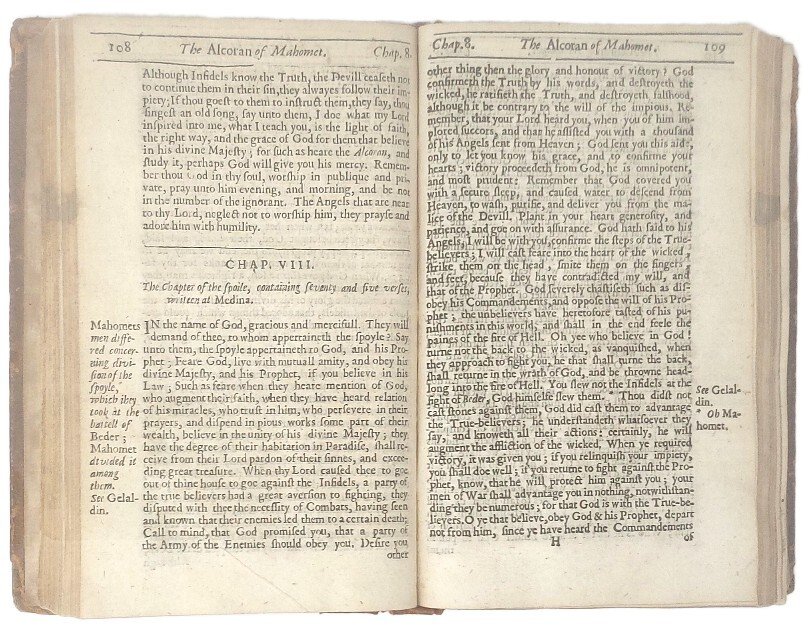 108 The Alcoran of Mahomet. Chap. 8.
Although Infidels know the Truth, the Devill ceaseth not
to continue them in their sin, they alwayes follow their im-
piety; If thou goest to them to instruct them, they say, thou
singest an old song, say unto them, I doe what my Lord
inspired into me, what I teach you, is the light of faith,
the right way, and the grace of God for them that believe
in his divine Majesty; for such as heare the Alcoran, and
study it, perhaps God will give you his mercy. Remem-
ber thou God in thy soul, worship in publique and pri-
vate, pray unto him evening, and morning, and be not
in the number of the ignorant. The Angels that are near
to thy Lord, neglect not to worship him, they prayse and
adore him with humility.
CHAP. VIII.
The Chapter of the spoile, containing seventy and five verses,
written at Medina.
IN the name of God, gracious and mercifull. They will
demand of thee, to whom appertaineth the spoyle? Say
unto them, the spoyle appertaineth to God, and his Pro-
phet; Feare God, live with mutuall amity, and obey his
divine Majesty, and his Prophet, if you believe in his
Law; Such as feare when they heare mention of God,
who augment their faith, when they have heard relation
of his miracles, who trust in him, who persevere in their
prayers, and dispend in pious works some part of their
wealth, believe in the unity of his divine Majesty; they
have the degree of their habitation in Paradise, shall re-
ceive from their Lord pardon of their sinnes, and excee-
ding great treasure. When thy Lord caused thee to goe
out of thine house to goe against the Infidels, a party of
the true believers had a great aversion to fighting, they
disputed with thee the necessity of Combats, having seen
and known that their enemies led them to a certain death;
Call to mind, that God promised you, that a party of
the Army of the Enemies should obey you. Desire you
other
Mahomets
men diffe-
red concer-
ning divi-
sion of the
spoyle,
which they
took at the
battell of
Beder;
Mahomet
divided it
among
them.
See Gelal-
din.
Chap. 8. The Alcoran of Mahomet. 109
other thing then the glory and honour of victory? God
confirmeth the Truth by his words, and destroyeth the
wicked, he ratifieth the Truth, and destroyeth falshood,
although it be contrary to the will of the impious. Re-
member, that your Lord heard you, when you of him im-
plored succors, and that he assisted you with a thousand
of his Angels sent from Heaven; God sent you this aide,
only to let you know his grace, and to confirme your
hearts; victory proceedeth from God, he is omnipotent,
and most prudent: Remember that God covered you
with a secure sleep, and caused water to descend from
Heaven, to wash, purifie, and deliver you from the ma-
lice of the Devill. Plant in your heart generosity, and
patience, and goe on with assurance. God hath said to his
Angels, I will be with you, confirme the steps of the True-
believers; I will cast feare into the heart of the wicked,
strike them on the head, smite them on the fingers
and feet, because they have contradicted my will, and
that of the Prophet. God severely chastiseth such as dis-
obey his Commandements, and oppose the will of his Pro-
phet; the unbelievers have heretofore tasted of his pu-
nishments in this world, and shall in the end feele the
paines of the fire of Hell. Oh yee who believe in God!
turne not the back to the wicked, as vanquished, when
they approach to fight you, he that shall turne the back,
shall returne in the wrath of God, and be throwne head-
long into the fire of Hell. You slew not the Infidels at the
fight of Beder, God himselfe slew them. * Thou didst not
cast stones against them, God did cast them to advantage
the True-believers; he understandeth whatsoever they
say, and knoweth all their actions; certainly, he will
augment the affliction of the wicked, When ye required
victory, it was given you; if you relinquish your impiety,
you shall doe well; if you returne to fight against the Pro-
phet, know, that he will protect him against you; your
men of War shall advantage you in nothing, notwithstan-
ding they be numerous; for that God is with the True-be-
lievers. O ye that believe, obey God & his Prophet, depart
not from him, since ye have heard the Commandements
H of
See Gelal-
din.
* Oh Ma-
homet.